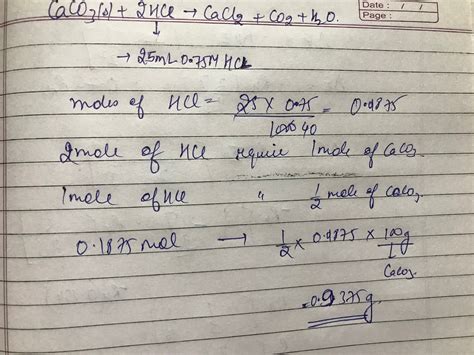 Date : / /
Page :
CaCO3(s) + 2HCl → CaCl2 + CO2 + H2O.
↓
→ 25mL 0.75M HCl
moles of HCl = 25 X 0.75 / 1000 40 = 0.1875
2mole of HCl require 1mole of CaCO3
1mole of HCl " 1/2 mole of CaCO3
0.1875 mol → 1/2 x 0.1875 x 100g / 1
CaCO3
=0.9375g